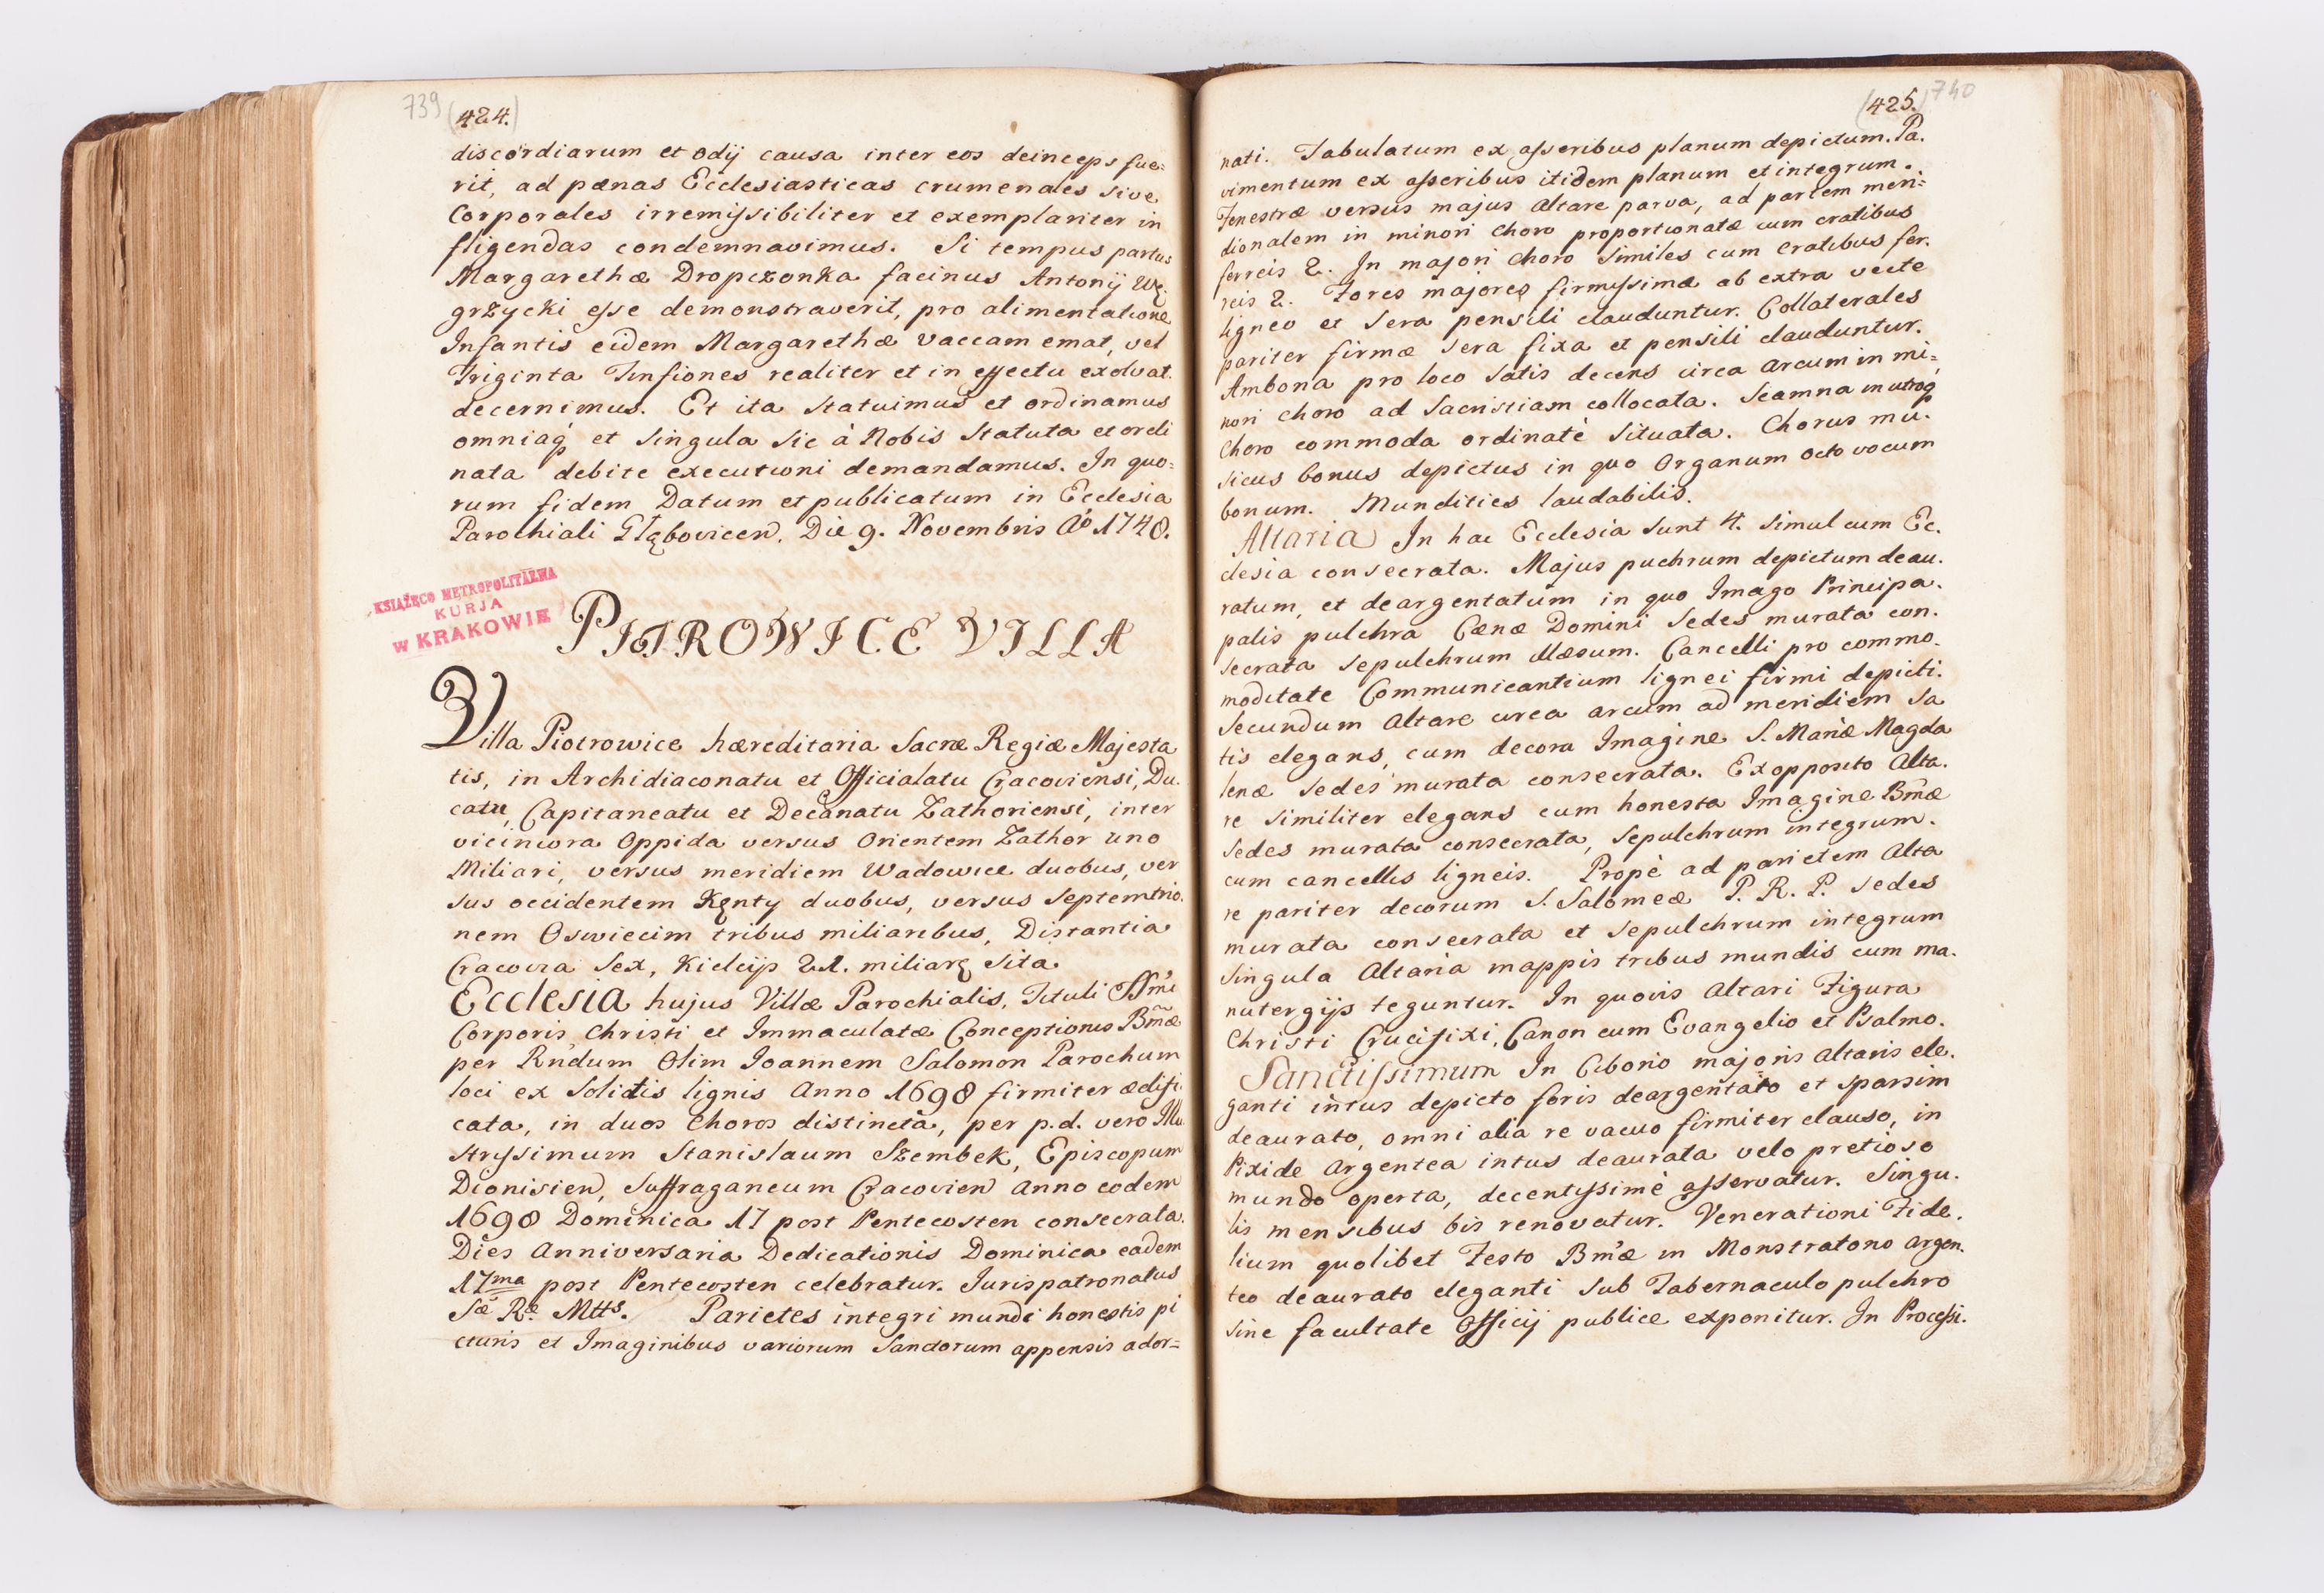 739 (424.)
discordiarum et odij causa inter eos deinceps fue=
rit, ad pœnas Ecclesiasticas crumenales sive
Corporales irremissibiliter et exemplariter in
fligendas condemnavimus. Si tempus partus
Margarethæ Dropczonka facinus Antonij Wę
grzycki esse demonstraverit, pro alimentatione
Infantis eidem Margarethæ vaccam emat, vel
Triginta Tinfiones realiter et in effectu exolvat
decernimus. Et ita statuimus et ordinamus
omniaq́ et singula sic à Nobis statuta et ordi
nata debite executioni demandamus. In quo=
rum fidem Datum et publicatum in Ecclesia
Parochiali Głąbovicen, Die 9. Novembris Aõ 1748.
KSIĄŻĘCO METROPOLITALNA
KURJA
W KRAKOWIE
PIOTROWICE VILLA
Villa Piotrowice hæreditaria Sacræ Regiæ Majesta
tis, in Archidiaconatu et Officialatu Cracoviensi, Du
catu, Capitaneatu et Decanatu Zathoriensi, inter
viciniora Oppida versus Orientem Zathor uno
Miliari, versus meridiem Wadowice duobus, ver
sus occidentem Kęnty duobus, versus Septemtrio.
nem Oswiecim tribus miliaribus, Distantia
Cracovia Sex, Kielcijs 21. miliarę sita
Ecclesia hujus Villæ Parochialis, Tituli SSmi
Corporis Christi et Immaculatæ Conceptionis Bmæ
per Rndum Olim Joannem Salomon Parochum
loci ex Solidis lignis Anno 1698 firmiter ædifi
cata, in duos Choros distincta, per p.d. vero Illu
strissimum Stanislaum Szembek, Episcopum
Dionisien, Suffraganeum Cracovien Anno eodem
1698 Dominica 17 post Pentecosten consecrata.
Dies Anniversaria Dedicationis Dominica eadem
17ma post Pentecosten celebratur. Jurispatronatus
Sæ Ræ Mtts. Parietes integri mundi honestis pi
cturis et Imaginibus variorum Sanctorum appensis ador=
(425.) 740
nati. Tabulatum ex asseribus planum depictum. Pa.
vimentum ex asseribus itidem planum et integrum.
Fenestræ versus majus Altare parva, ad partem meri=
dionalem in minori Choro proportionatæ cum cratibus
ferreis 2. In majori Choro similes cum cratibus fer.
reis 2. Fores majores firmissimæ ab extra vecte
ligneo et Sera pensili clauduntur. Collaterales
pariter firmæ sera fixa et pensili clauduntur.
Ambona pro loco satis decens circa Arcum in mi=
nori Choro ad Sacristiam collocata. Scamna in utroq́
Choro commoda ordinatè situata. Chorus mu.
sicus bonus depictus in quo Organum octo vocum
bonum. Mundities laudabilis.
Altaria In hac Ecclesia sunt 4. simul cum Ec.
clesia consecrata. Majus puchrum depictum deau.
ratum, et deargentatum in quo Imago Principa.
palis pulchra Cænæ Domini Sedes murata con.
secrata sepulchrum illæsum. Cancelli pro commo.
moditate Communicantium lignei firmi depicti.
Secundum Altare circa arcum ad meridiem sa
tis elegans, cum decora Imagine S. Mariæ Magda
lenæ sedes murata consecrata. Ex opposito Alta.
re similiter elegans cum honesta Imagine Bmæ
sedes murata consecrata, sepulchrum integrum.
cum cancellis ligneis. Propè ad parietem Alta
re pariter decorum S. Salomeæ P. R. P. sedes
murata consecrata et sepulchrum integrum
singula Altaria mappis tribus mundis cum ma.
nutergijs teguntur. In quovis Altari Figura
Christi Crucifixi, Canon cum Evangelio et Psalmo.
Sanctissimum In Ciborio majoris Altaris ele.
ganti intus depicto foris deargentato et sparsim
deaurato, omni alia re vacuo firmiter clauso, in
Pixide Argentea intus deaurata velo pretioso
mundo operta, decentissimè asservatur. Singu.
lis mensibus bis renovatur. Venerationi Fide.
lium quolibet Festo Bmæ in Monstratorio argen.
teo deaurato eleganti sub Tabernaculo pulchro
sine facultate Officij publice exponitur. In Processi.